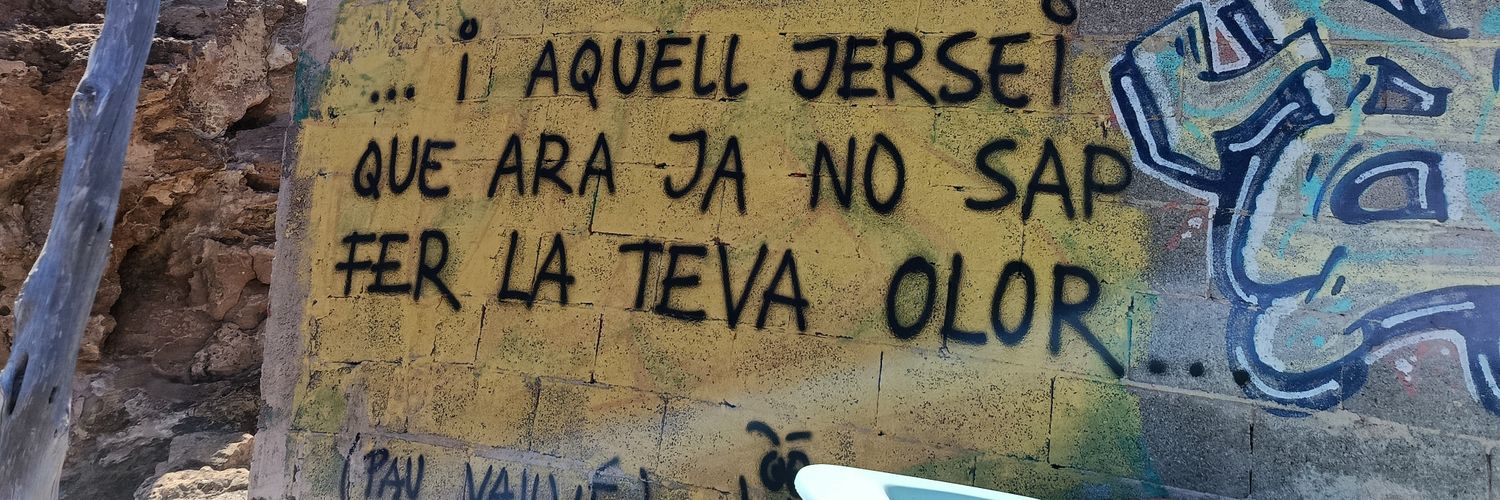 ... i AQUELL JERSEi
QUE ARA JA NO SAP
FER LA TEVA OLOR....
(PAU